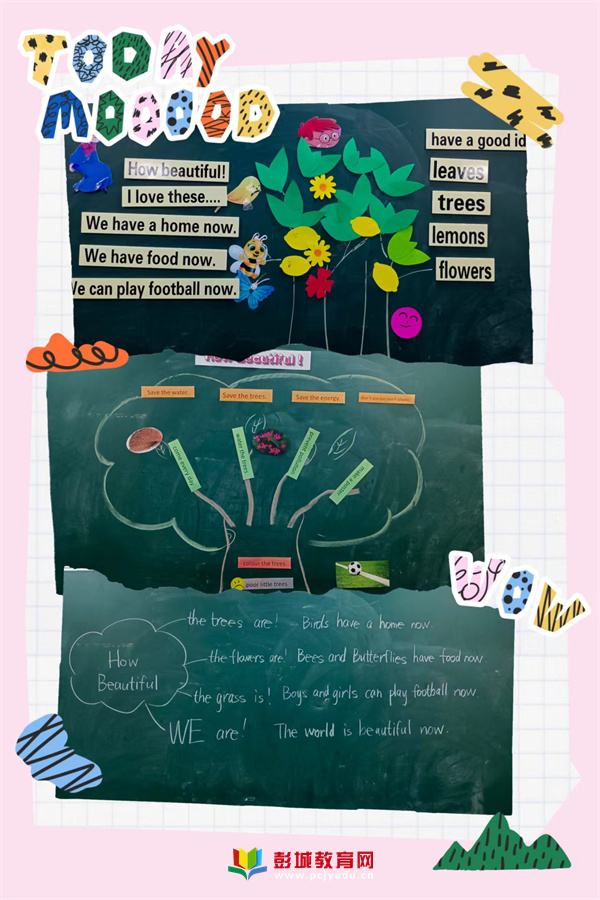 TODAY
MOOOOD
How beautiful!
I love these....
We have a home now.
We have food now.
We can play football now.
have a good id
leaves
trees
lemons
flowers
How Beautiful!
Save the water.
Save the trees.
Save the energy.
come every day
water the trees
prevent pollution
make a poster
colour the trees
poor little trees
How
Beautiful
the trees are! Birds have a home now.
the flowers are! Bees and Butterflies have food now
the grass is! Boys and girls can play football now.
WE are! The world is beautiful now.
WOW
彭城教育网
www.pcjyedu.cn